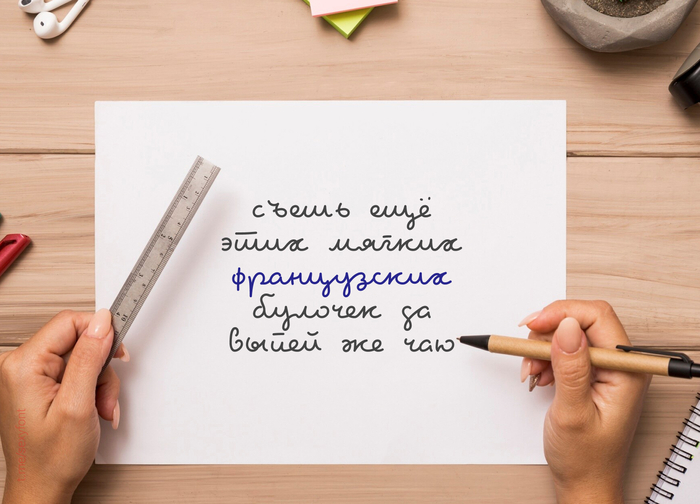 съешь ещё
этих мягких
французских
булочек да
выпей же чаю